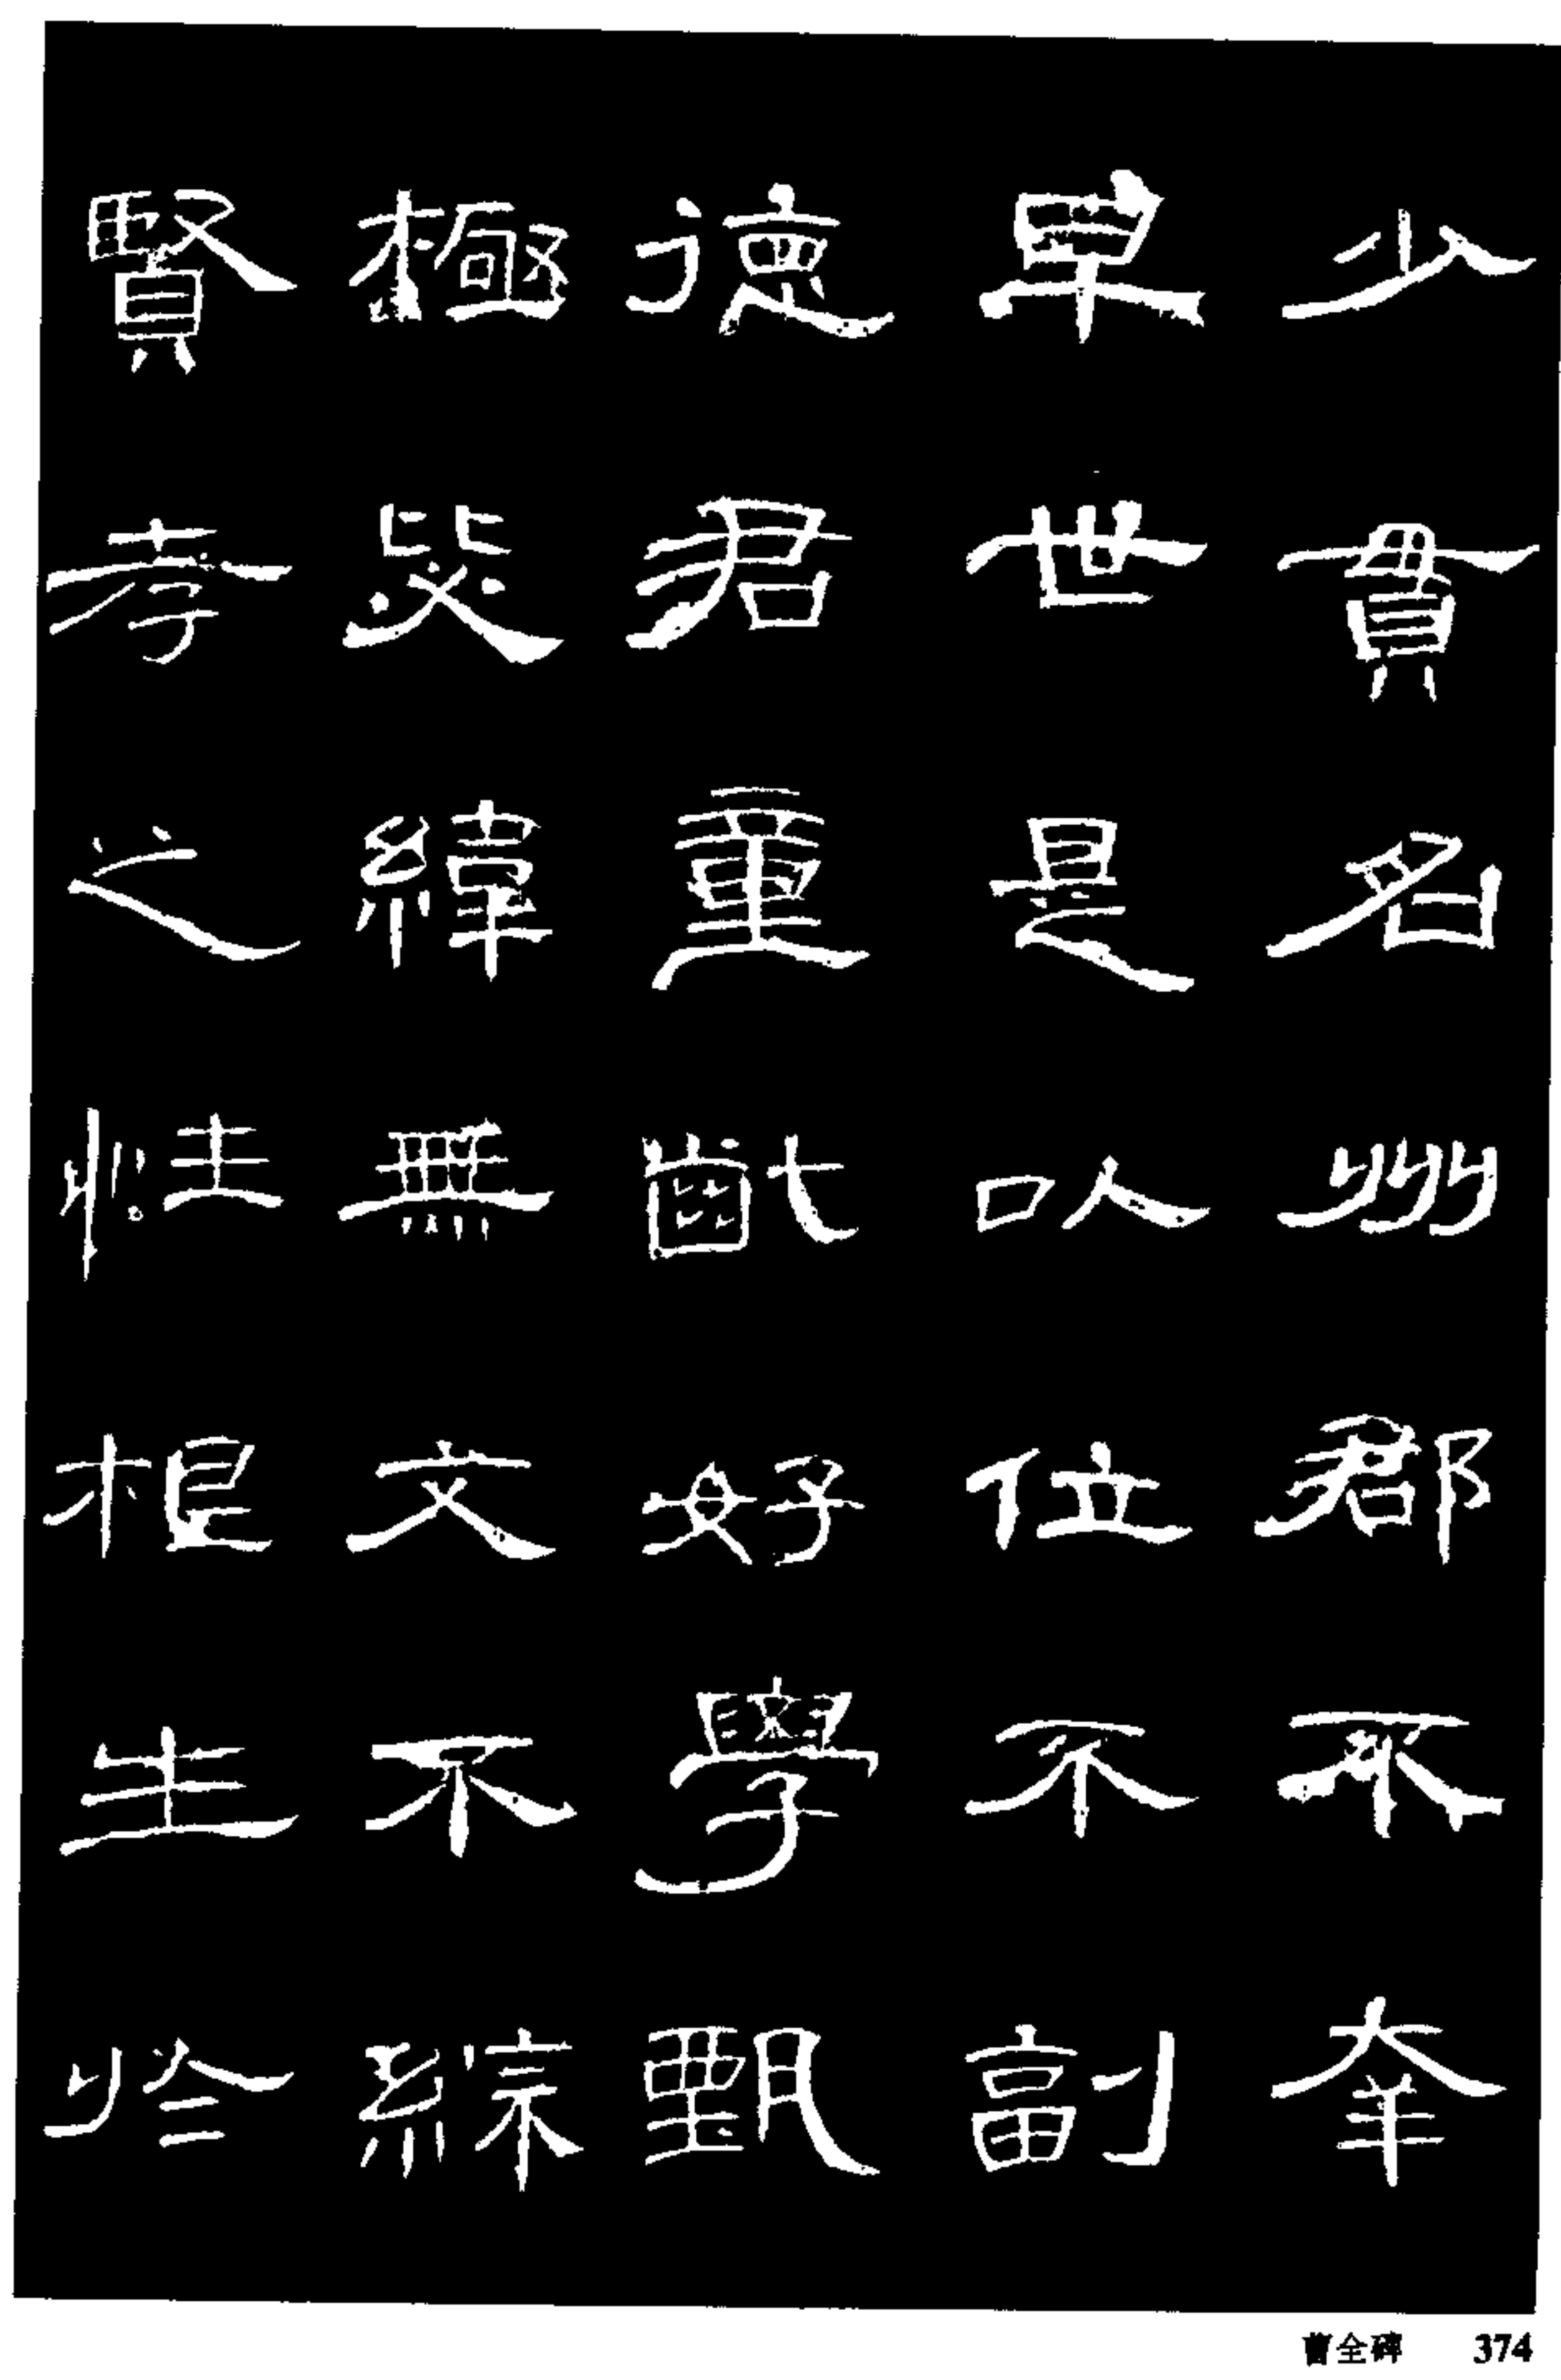 少貫名州郡不幸
早世是以位不副
德君童齔好學甄
極毖緯無文不綜
賢孝之性根生於
曹全碑 374